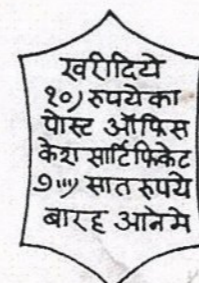 खरीदिये
१०) रुपयेका
पोस्ट ऑफिस
केश सार्टिफिकेट
७॥।) सात रुपये
बारह आनेमे